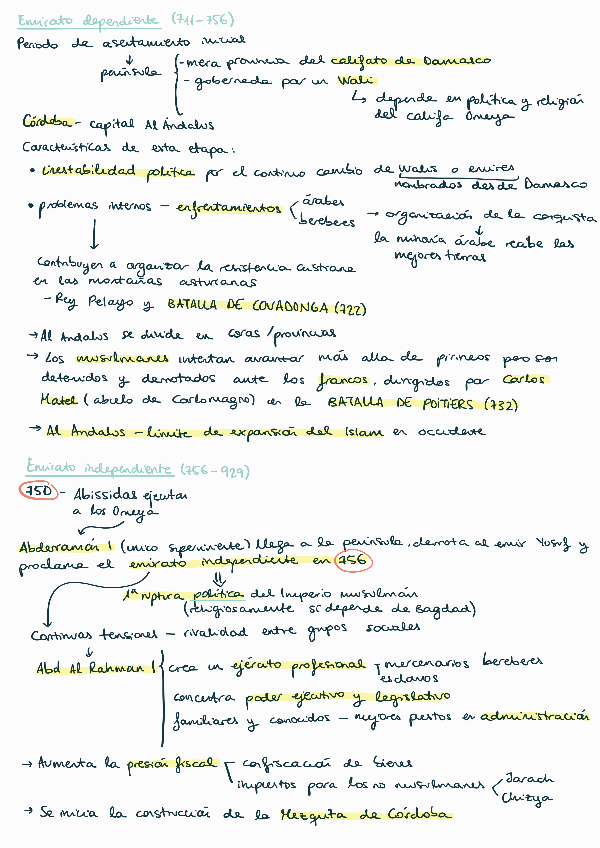 Emirato dependiente (711-756)
Periodo de asentamiento inicial
península
- mera provincia del califato de Damasco
- gobernada por un Wali
↳ depende en política y religión
del califa Omeya
Córdoba - capital Al Ándalus
Características de esta etapa:
• inestabilidad política por el continuo cambio de walis o emires
nombrados desde Damasco
• problemas internos - enfrentamientos < árabes
bereberes
→ organización de la conquista
la minoría árabe recibe las
mejores tierras
Contribuyen a organizar la resistencia cristiana
en las montañas asturianas
- Rey Pelayo y BATALLA DE COVADONGA (722)
→ Al Andalus se divide en coras / provincias
→ Los musulmanes intentan avanzar más allá de pirineos pero son
detenidos y derrotados ante los francos, dirigidos por Carlos
Martel (abuelo de Carlomagno) en la BATALLA DE POITIERS (732)
→ Al Andalus - límite de expansión del Islam en occidente
Emirato independiente (756-929)
750 - Abissidas ejecutan
a los Omeya
Abderramán I (único superviviente) llega a la península, derrota al emir Yusuf y
proclama el emirato independiente en 756
1ª ruptura política del Imperio musulmán
(religiosamente sí depende de Bagdad)
Continuas tensiones - rivalidad entre grupos sociales
Abd Al Rahman I
crea un ejército profesional
mercenarios bereberes
esclavos
concentra poder ejecutivo y legislativo
familiares y conocidos - mejores puestos en administración
→ Aumenta la presión fiscal
confiscación de bienes
impuestos para los no musulmanes < Jarach
Chizya
→ Se inicia la construcción de la Mezquita de Córdoba